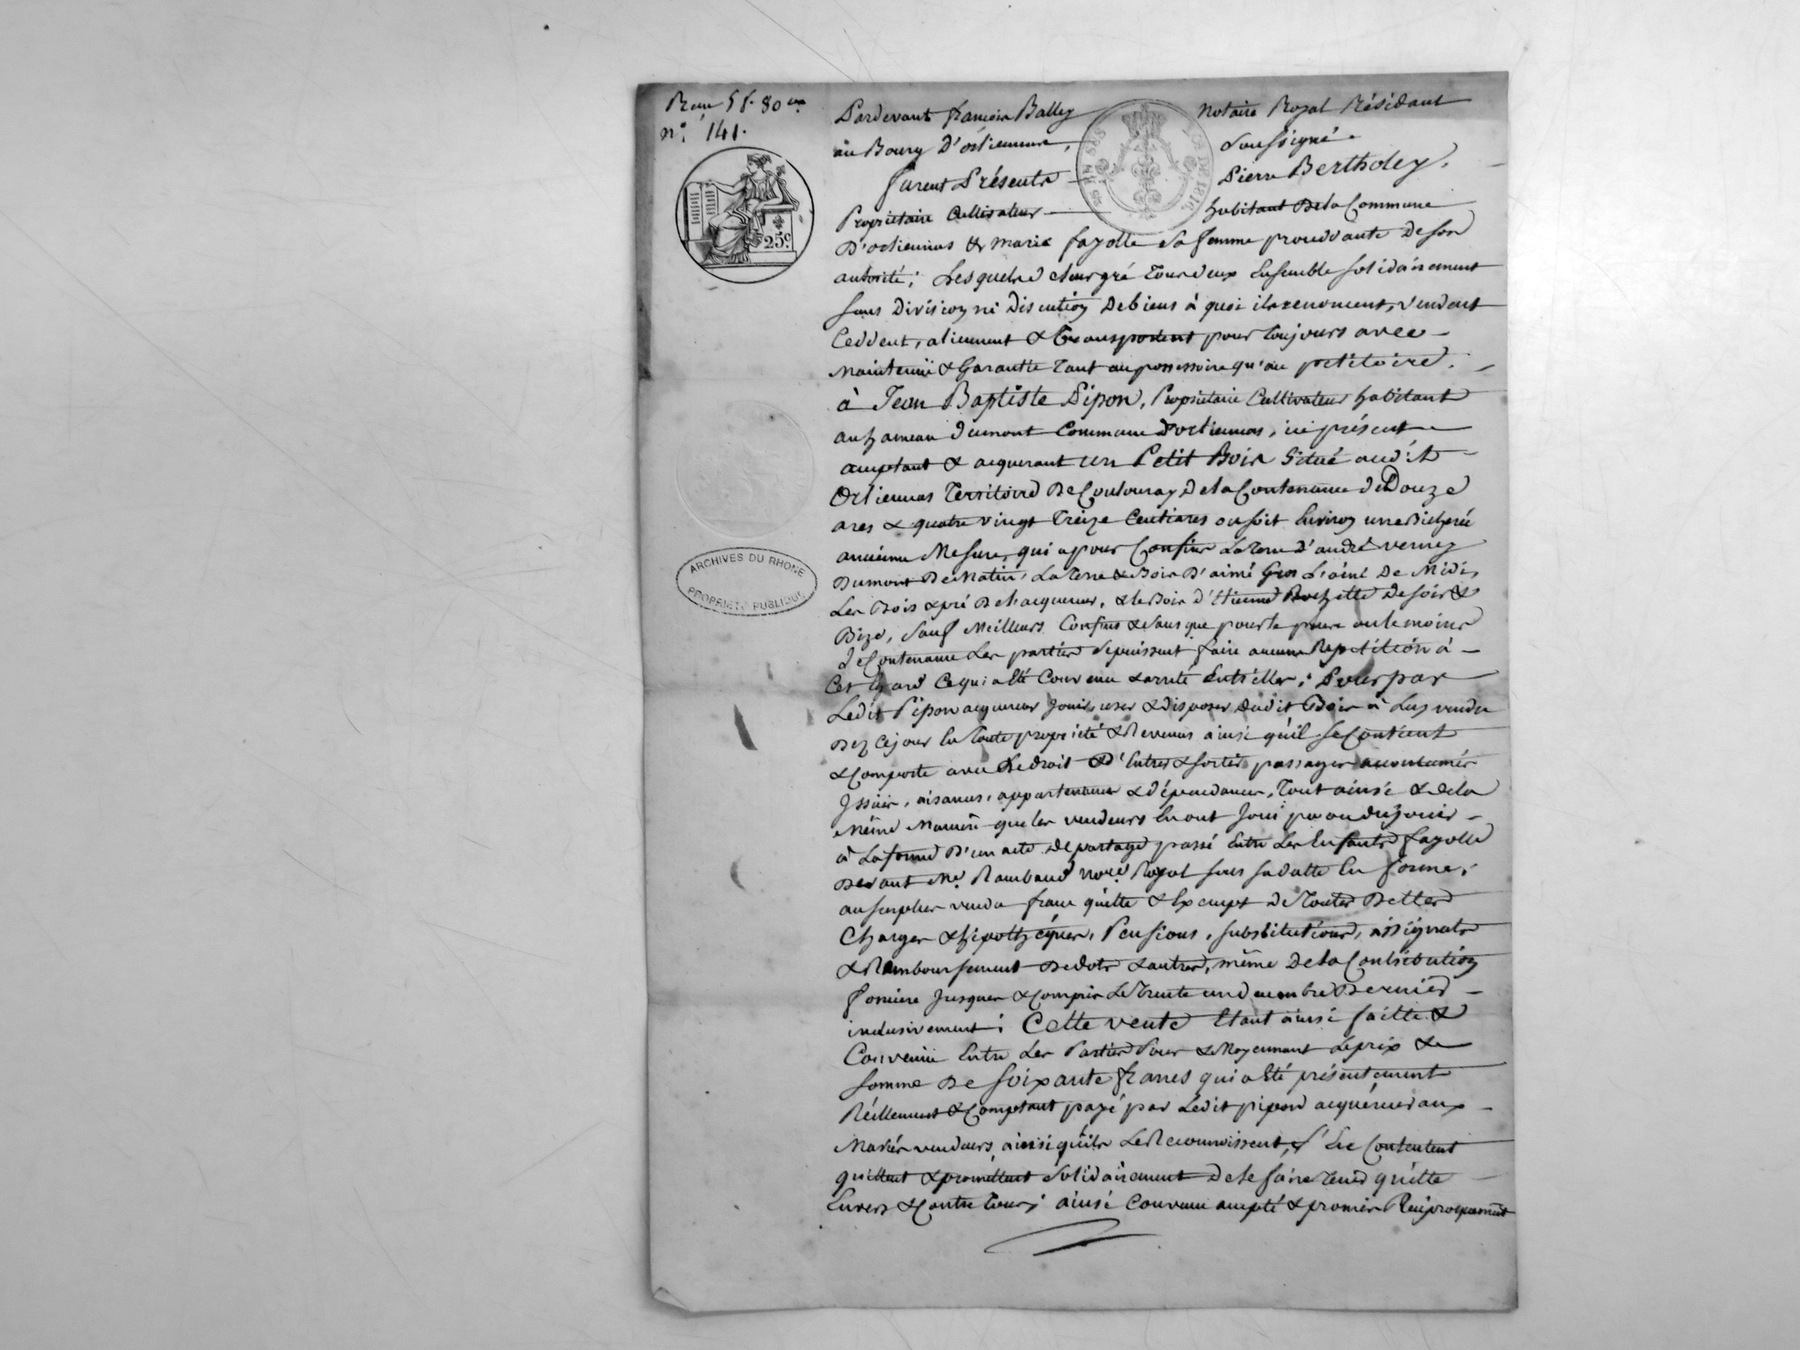 Reçu 5 f. 80 ces
n.° 141.
25.c
ARCHIVES DU RHONE
PROPRIETE PUBLIQUE
Pardevant françois Bally Notaire Royal Résidant
au Bourg D'orliennas, Soussigné.
furent Présents Pierre Bertholey,
Propriétaire Cultivateur habitant Dela Commune
D'orliennas & marie fayolle sa femme procédante De son
autorité; Lesquels de leur gré tous deux Ensemble solidairement
sans Division ni Discution De biens à quoi ils renoncent, vendent
Ceddent, aliennent & transportent pour toujours avec
Maintenüe & Garantie tant au possessoire qu'au petitoire.
à Jean Baptiste Pipon, Propriétaire Cultivateur habitant
au hameau dumont Commune d'orliennas, ici présent
acceptant & acquerant un Petit Bois Situé audit
Orliennas Territoire De Coulouray, De la Contenance de Douze
ares & quatre vingt treize Centiares ou soit Environ une Bicherée
ancienne Mesure, qui a pour Confins La terre d'andré verney
Dumont De Matin, La terre & Bois D'aimé Gros L'ainé De Midi,
Les Bois & pré De l'acquereur, & le Bois d'Etienne Rochette De soir &
Bize, Sauf Meilleurs Confins & sans que pour le plus ou le moins
de Contenance Les parties se puissent faire aucune Repétition à
Cet Egard Ce qui a Eté Convenu & arreté Entr'elles; Pour par
Ledit Pipon acquereur jouir, user & disposer dudit Bois à Luy vendu
Dez ce jour En toute propriété & Revenus ainsi qu'il se Contient
& Comporte avec Le droit D'Entrées & sorties passages accoutumés
Issües, aisances, appartenances & dépendances, Tout ainsi & de la
Même Maniere que les vendeurs En ont Joui pu ou dû jouir
à La forme D'un acte de partage passé Entre Les Enfants fayolle
Devant Me. Rambaud Nore. Royal sous sa datte En forme;
au surplus vendu franc quitte & Exempt de toutes Dettes
Charges & hipothéques, Pensions, substitutions, assignats
& Remboursement De dots & autres, même De la Contribution
fonciere Jusques & Compris Le trente un decembre Dernier
inclusivement; Cette vente Etant ainsi faitte &
Convenüe Entre Les Parties Pour & Moyennant Le prix &
somme De soixante francs qui a Eté présentement
Réellement & Comptant payé par Ledit pipon acquéreur aux
Mariés vendeurs, ainsi qu'ils Le Reconnoissent, s'En Contentent
quittent & promettent solidairement De le faire tenir quitte
Envers & Contre tous; ainsi Convenu accepté & promis Réciproquement